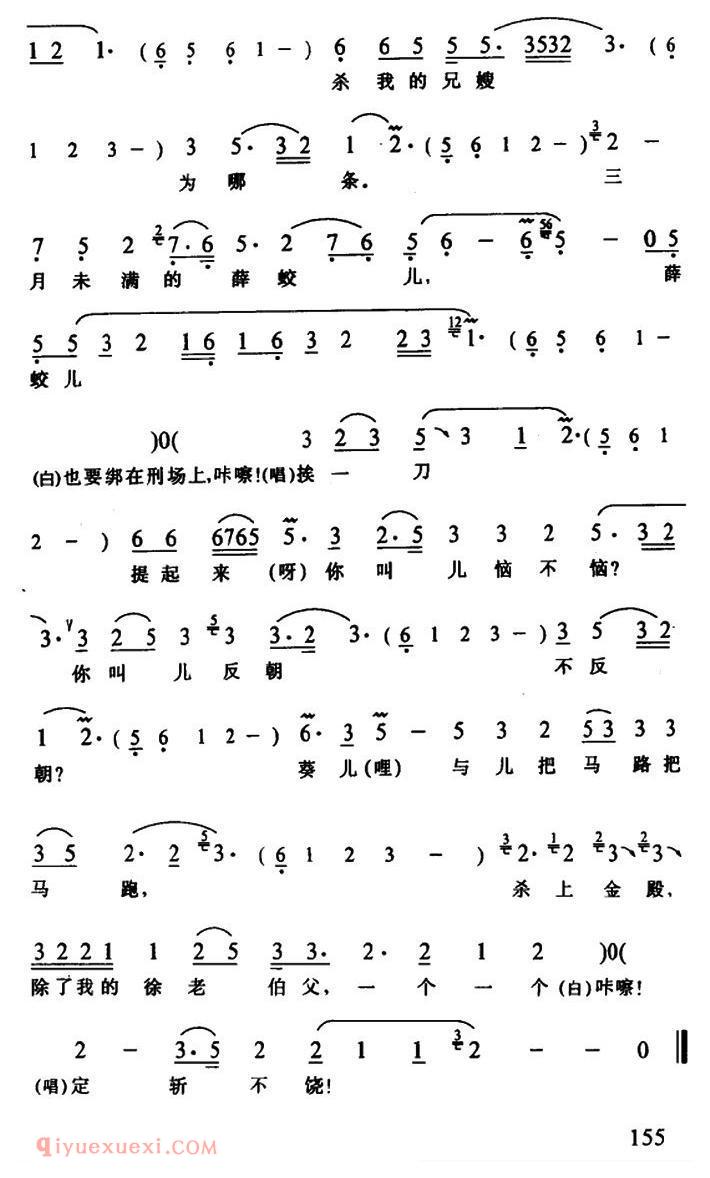 1 2 1· ( 6 5 6 1 – ) 6 6 5 5 5· 3532 3· ( 6
杀 我 的 兄 嫂
1 2 3 – ) 3 5· 3 2 1 2· ( 5 6 1 2 – ) 3 2 –
为 哪 条。 三
7 5 2 2 7· 6 5· 2 7 6 5 6 – 6 56 5 – 0 5
月 未 满 的 薛 蛟 儿, 薛
5 5 3 2 1 6 1 6 3 2 2 3 12 1· ( 6 5 6 1 –
蛟 儿
)0( 3 2 3 5 3 1 2· ( 5 6 1
(白)也要绑在刑场上,咔嚓!(唱)挨 一 刀
2 – ) 6 6 6765 5· 3 2· 5 3 3 2 5· 3 2
提 起 来 (呀) 你 叫 儿 恼 不 恼?
3· 3 2 5 3 5 3 3· 2 3· ( 6 1 2 3 – ) 3 5 3 2
你 叫 儿 反 朝 不 反
1 2· ( 5 6 1 2 – ) 6· 3 5 – 5 3 2 5 3 3 3
朝? 葵 儿 (哩) 与 儿 把 马 路 把
3 5 2· 2 5 3· ( 6 1 2 3 – ) 3 2· 1 2 2 3 2 3
马 跑, 杀 上 金 殿,
3 2 2 1 1 2 5 3 3· 2· 2 1 2 )0(
除了我的 徐 老 伯 父, 一 个 一 个 (白)咔嚓!
2 – 3· 5 2 2 1 1 3 2 – – 0
(唱)定 斩 不 饶!
155
qiyuexuexi.COM